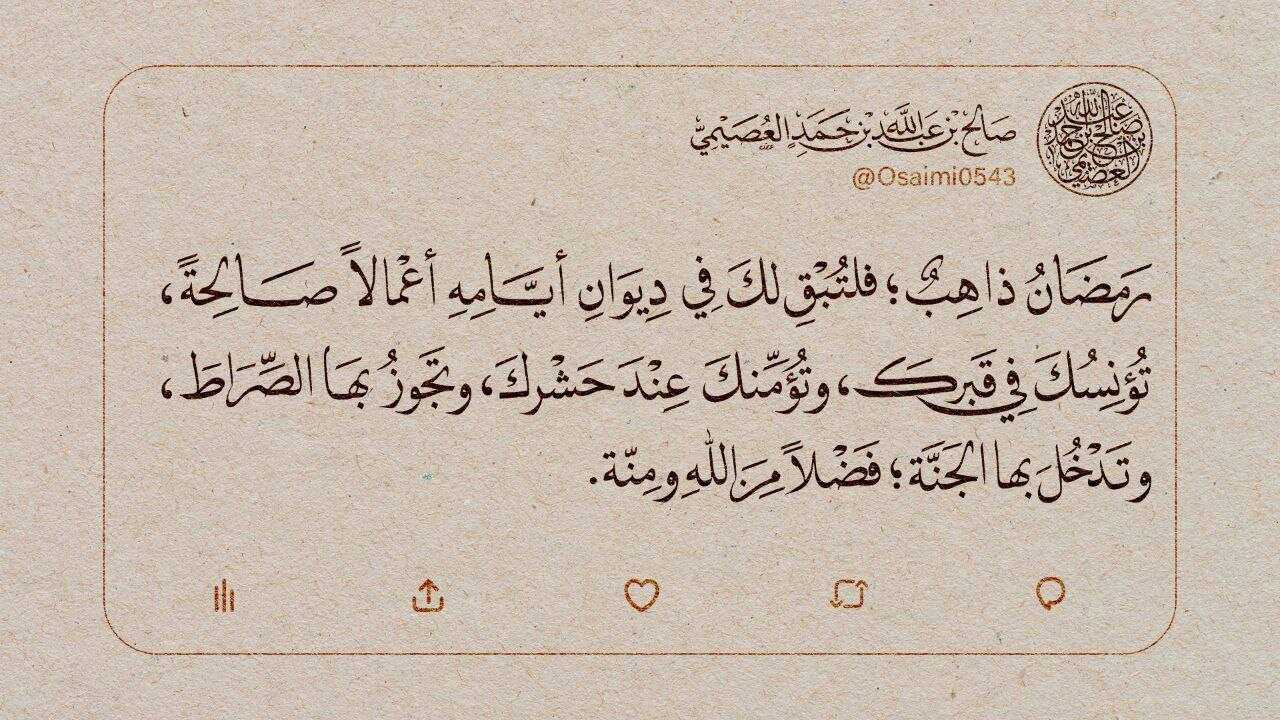 صَالِحُ بْنُ عَبْدِ اللَّهِ بْنِ حَمَدٍ العُصَيْمِيُّ
@Osaimi0543
رَمَضَانُ ذاهِبٌ؛ فلتُبْقِ لكَ فِي دِيوَانِ أيَّامِهِ أعْمالاً صَالِحَةً،
تُؤنِسُكَ فِي قَبرِكَ، وتُؤَمِّنكَ عِنْدَ حَشْرِكَ، وتَجُوزُ بِهَا الصِّرَاطَ،
وتَدْخُلَ بها الجَنَّةَ؛ فَضْلاً مِنَ اللهِ ومِنّة.